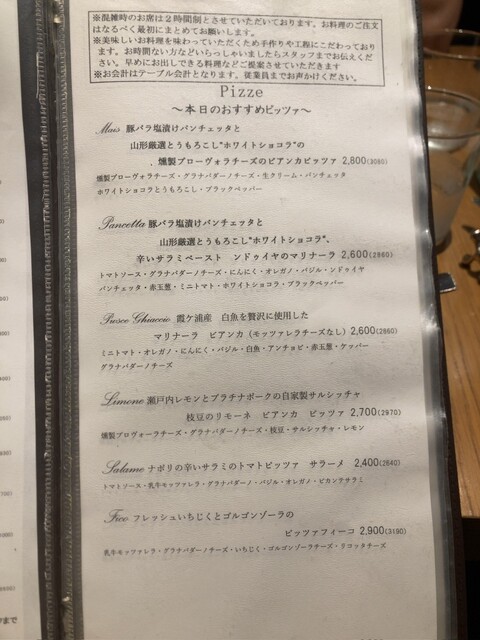 ※混雑時のお席は2時間制とさせていただいております。お料理のご注文
はなるべく最初にまとめてお願いします。
※美味しいお料理を味わっていただくため手作りや工程にこだわっており
ます。お時間ない方などいらっしゃいましたらスタッフまでお伝えくだ
さい。早めにお出しできる料理などご提案させていただきます
※お会計はテーブル会計となります。従業員までお声かけください。
Pizze
～本日のおすすめピッツァ～
Mais 豚バラ塩漬けパンチェッタと
山形厳選とうもろこし"ホワイトショコラ"の
燻製プローヴォラチーズのビアンカピッツァ 2,800(3080)
燻製プローヴォラチーズ・グラナパダーノチーズ・生クリーム・パンチェッタ
ホワイトショコラとうもろこし・ブラックペッパー
Pancetta 豚バラ塩漬けパンチェッタと
山形厳選とうもろこし"ホワイトショコラ"、
辛いサラミペースト ンドゥイヤのマリナーラ 2,600(2860)
トマトソース・グラナパダーノチーズ・にんにく・オレガノ・バジル・ンドゥイヤ
パンチェッタ・赤玉葱・ミニトマト・ホワイトショコラ・ブラックペッパー
Pesce Ghiaccio 霞ケ浦産 白魚を贅沢に使用した
マリナーラ ビアンカ (モッツァレラチーズなし) 2,600(2860)
ミニトマト・オレガノ・にんにく・バジル・白魚・アンチョビ・赤玉葱・ケッパー
グラナパダーノチーズ
Limone 瀬戸内レモンとプラチナポークの自家製サルシッチャ
枝豆のリモーネ ビアンカ ピッツァ 2,700(2970)
燻製プロヴォーラチーズ・グラナパダーノチーズ・枝豆・サルシッチャ・レモン
Salame ナポリの辛いサラミのトマトピッツァ サラーメ 2,400(2640)
トマトソース・乳牛モッツァレラ・グラナパダーノ・バジル・オレガノ・ピカンテサラミ
Fico フレッシュいちじくとゴルゴンゾーラの
ピッツァフィーコ 2,900(3190)
乳牛モッツァレラ・グラナパダーノチーズ・いちじく・ゴルゴンゾーラチーズ・リコッタチーズ